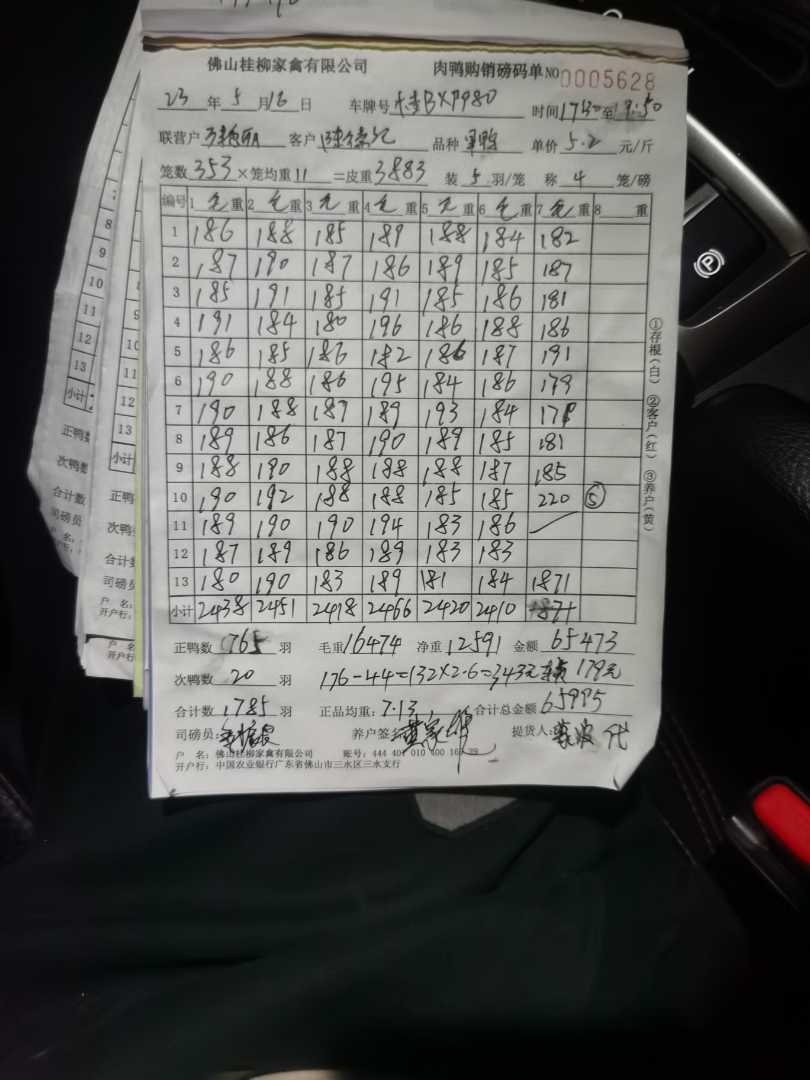 佛山桂柳家禽有限公司 肉鸭购销磅码单 NO 0005628
23 年 5 月 16 日 车牌号 时间 1730 至 19:50
联营户 客户 品种 单价 5.2 元/斤
笼数 353 × 笼均重 11 =皮重 3883 装 5 羽/笼 称 4 笼/磅
编号 1 毛 重 2 毛 重 3 毛 重 4 毛 重 5 毛 重 6 毛 重 7 毛 重 8 重
1 186 188 185 189 188 184 182
2 187 190 187 186 189 185 187
3 185 191 185 191 185 186 181
4 191 184 180 196 186 188 186
5 186 185 186 182 186 187 191
6 190 188 186 195 184 186 179
7 190 188 187 189 193 184
8 189 186 187 190 189 185 181
9 188 190 188 188 188 187 185
10 190 192 188 188 185 185 220 ⑤
11 189 190 190 194 183 186
12 187 189 186 189 183 183
13 180 190 183 189 181 184 1871
小计 2438 2451 2418 2466 2420 2410
正鸭数 1765 羽 毛重 16474 净重 12591 金额 65473
次鸭数 20 羽 176-44=132×2.6=343元 179元
合计数 1785 羽 正品均重: 7.13 合计总金额 65995
司磅员: 养户签名 提货人: 代
户 名: 佛山桂柳家禽有限公司 账号: 444 401 010 400 16
开户行: 中国农业银行广东省佛山市三水区三水支行
①存根(白) ②客户(红) ③养户(黄)
8
9
10
11
12
13
小计
正鸭
次鸭数
合计数
司磅员
户 名:
开户行:
8
9
10
11
12
13
小计
正鸭
次鸭数
合计数
司磅员
户 名:
开户行:
户 名:
开户行
P